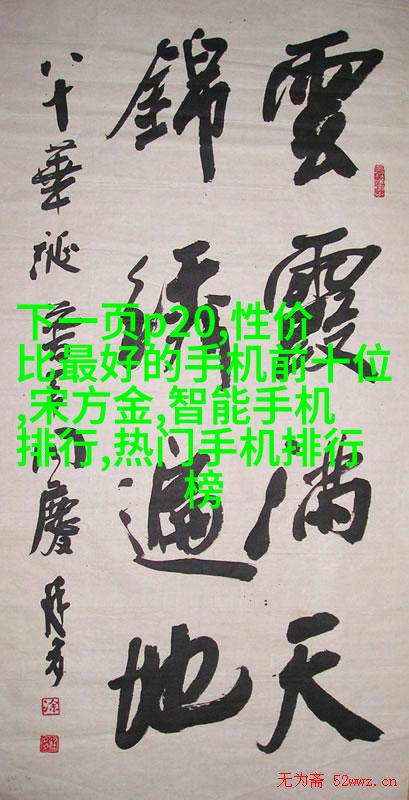 雲霞满天
錦繡遍地
八十華诞慶
下一页p20,性价
比最好的手机前十位
,宋方金,智能手机
排行,热门手机排行
榜
无为斋 52wwz.cn